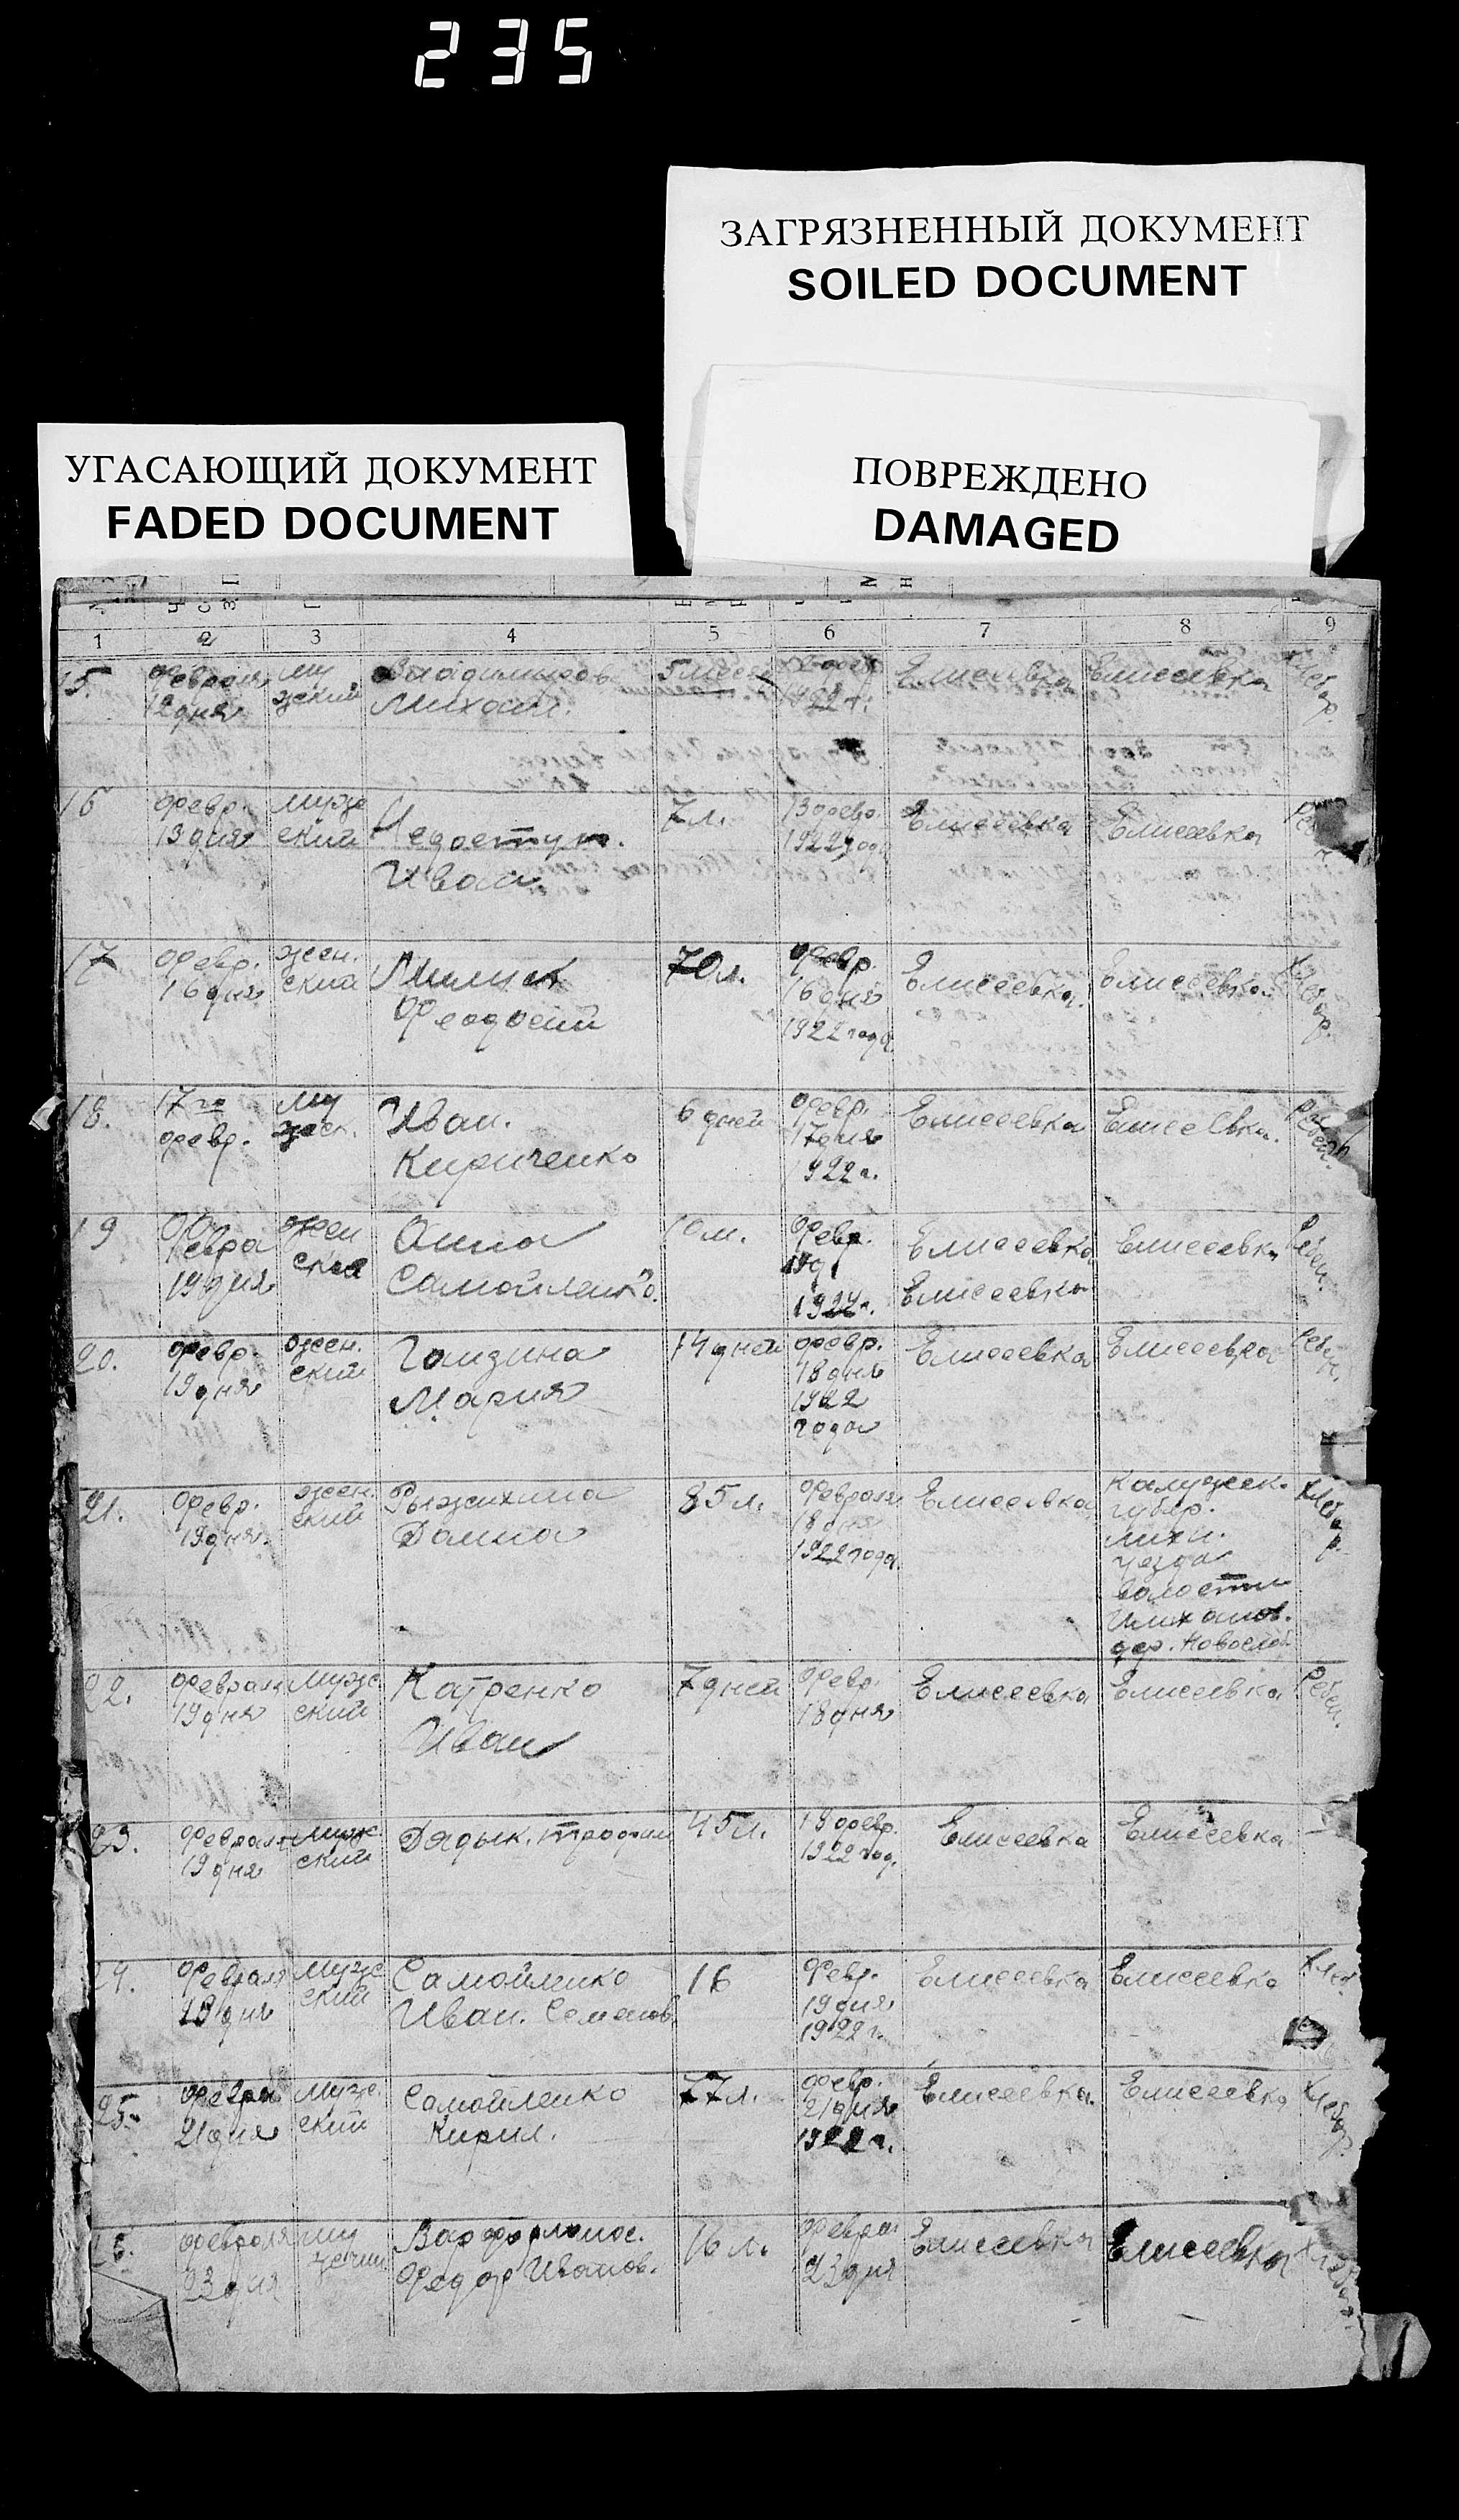 235
ЗАГРЯЗНЕННЫЙ ДОКУМЕНТ
SOILED DOCUMENT
УГАСАЮЩИЙ ДОКУМЕНТ
FADED DOCUMENT
ПОВРЕЖДЕНО
DAMAGED
1 2 3 4 5 6 7 8 9
15. февраля му Владимиров 5 Елисеевка Елисеевка Хлебор.
12 дня жский Михаил. 1922 г.
16 февр. муже 7 л. 13 февр. Елисеевка Елисеевка
13 дня ский Недоступ. 1922 года
Иван
17 февр. жен. 70 л. февр. Елисеевка. Елисеевка. Хлебор.
16 дня ский 16 дня
Феодосий 1922 года
18. 17го му Иван. 6 дней февр. Елисеевка Елисеевка. Ребен.
февр. жск. Кириченко 17 дня
1922 г.
19 Февра жен Анна 10 м. Февр. Елисеевка Елисеевка Ребен.
19 дня ская Самойленко. 19 д Елисеевка
1922 г.
20. февр. жен. Ганзина 14 дней февр. Елисеевка Елисеевка Ребен.
19 дня ский Мария 18 дня
1922
года
21. Февр. жен. Рыжихина 85 л. Февраля Елисеевка Калужск. Хлебор.
19 дня. ский Домна 18 дня губер.
1922 года
уезда
волости
дер.
22. Февраля Мужс Катренко 7 дней Февр. Елисеевка Елисеевка Ребен.
19 дня ский Иван 18 дня
23. Февраля Мужс Дядык. Трофим 45 л. 19 февр. Елисеевка Елисеевка —
19 дня ский 1922 год.
24. Февраля Мужс Самойленко 16 Февр. Елисеевка Елисеевка Хлеб.
19 дня ский Иван. Семенов 19 дня
1922 г.
25. Февраля Мужс. Самойленко 77 л. февр. Елисеевка. Елисеевка Хлебор.
21 дня ский Кирил. 21 дня
1922 г.
26. февраля му Варфоломее. 16 л. Феврал Елисеевка Елисеевка
23 дня Федор Иванов. 23 дня